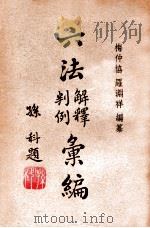 梅仲協 羅淵祥 編纂
六法
解釋
判例
彙編
孫科題